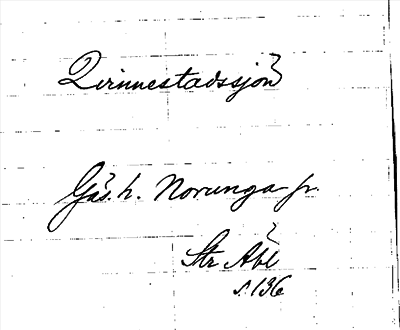 Qvinnestadssjön
Gäs. h. Norunga sn.
Str Åbl
s. 136